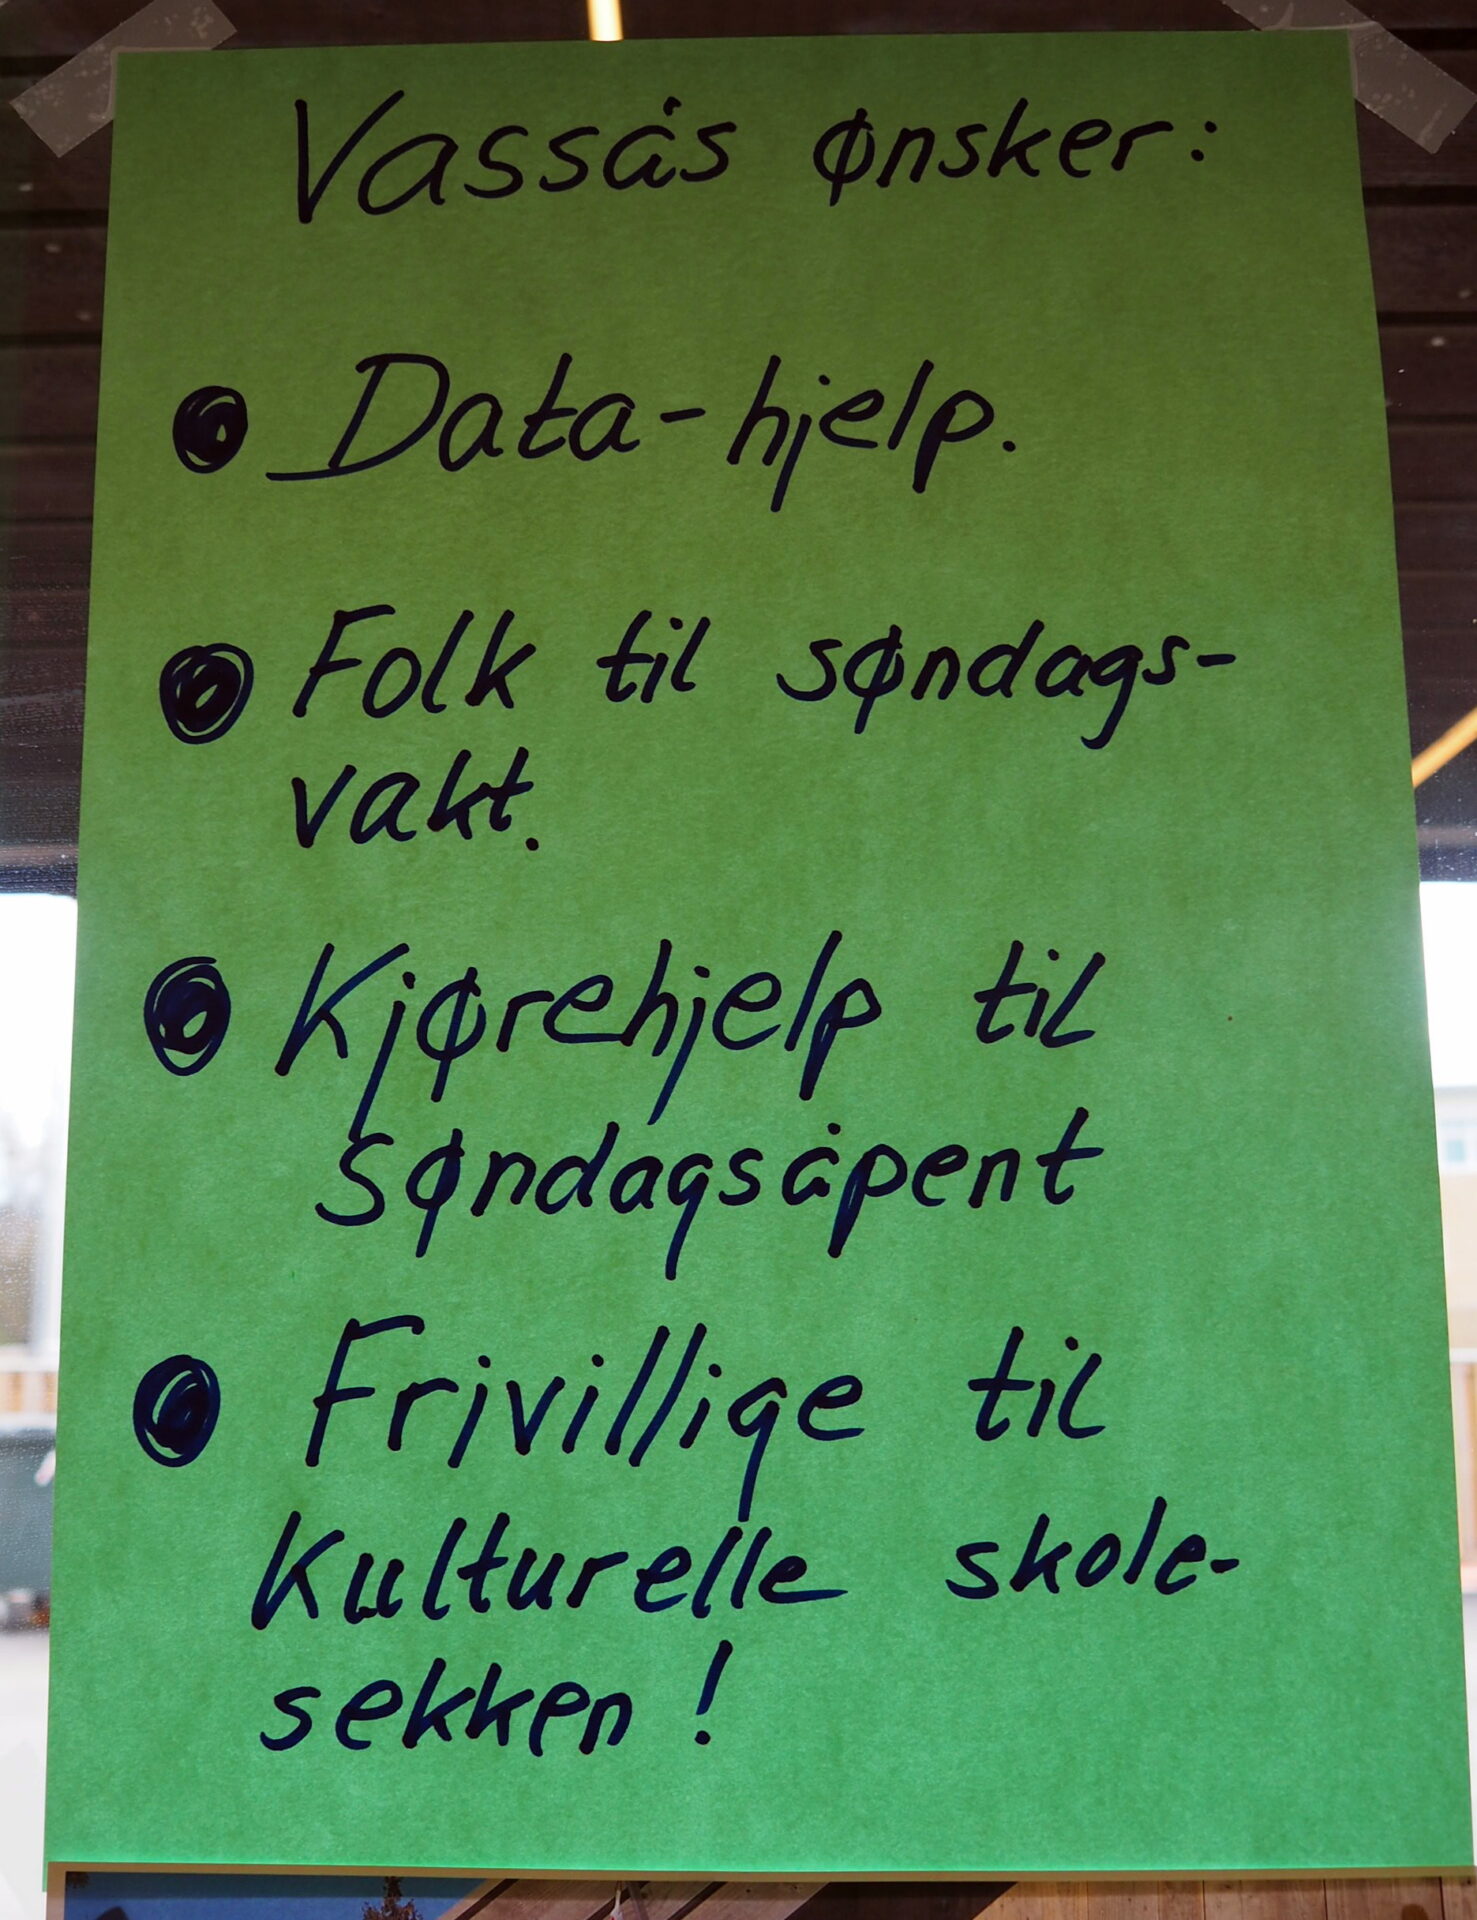 Vassås ønsker:
• Data-hjelp.
• Folk til søndags-
vakt.
• Kjørehjelp til
søndagsåpent
• Frivillige til
Kulturelle skole-
sekken!